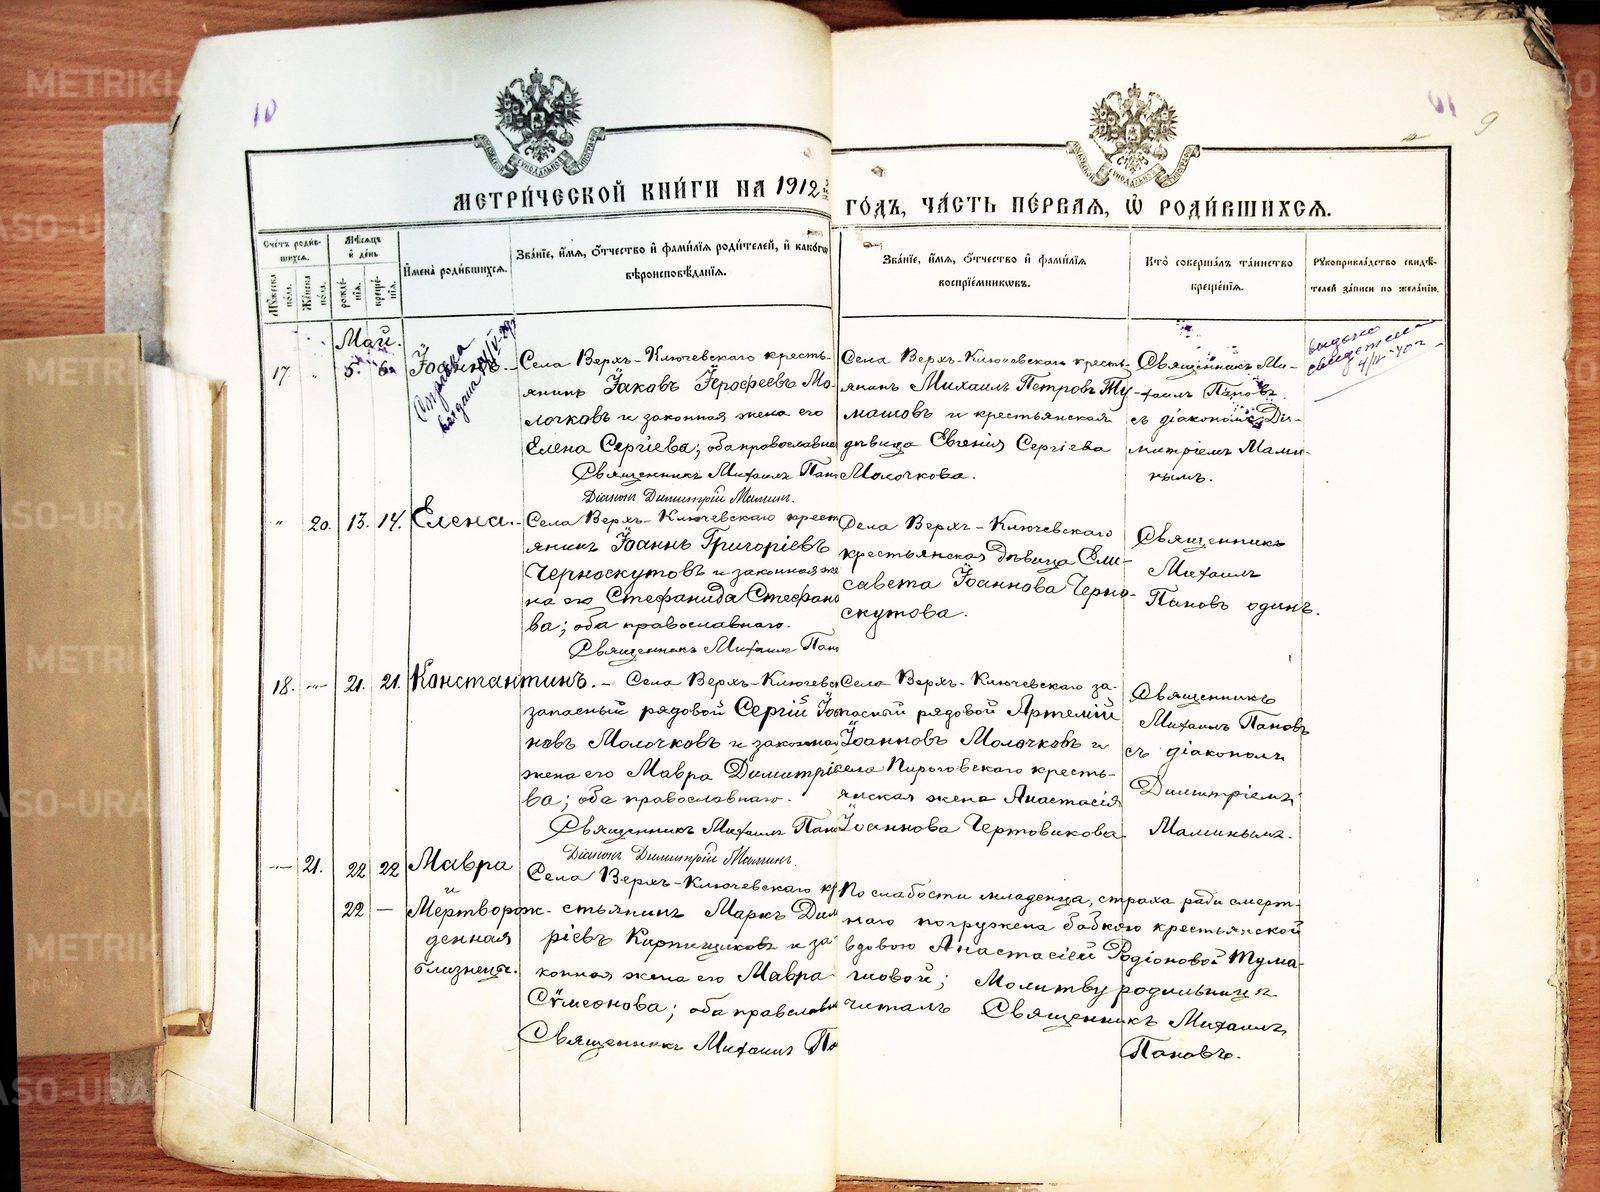 METRIKI.GASO-URAL.RU
10
9
МЕТРИ́ЧЕСКОЙ КНИ́ГИ НА 1912
ГО́ДЪ, ЧА́СТЬ ПЕ́РВАЯ, Ѡ РОДИ́ВШИХСЯ.
Сче́тъ роди́в-
шихся.
Му́жеска по́ла.
Же́нска по́ла.
Мѣ́сяцъ и де́нь
рожде́-
нія.
креще́-
нія.
Имена̀ роди́вшихся.
Зва́ніе, и́мя, о́тчество и фами́лія роди́телей, и како́гѡ
вѣроисповѣ́данія.
Зва́ніе, и́мя, о́тчество и фами́лія
воспріе́мниковъ.
Кто̀ соверша́лъ та́инство
креще́нія.
Рукоприкла́дство свидѣ́-
телей за́писи по жела́нію.
Май.
17 " 5. 6. Іоаннъ.
Справка
выдана
Села Верхъ-Ключевскаго кресть-
янинъ Іаковъ Іерофеевъ Мо-
лочковъ и законная жена его
Елена Сергіева; оба православна
Священникъ Михаилъ Пан
Діаконъ Димитрій Маминъ.
Села Верхъ-Ключевскаго кресть-
янинъ Михаилъ Петровъ Ту-
машовъ и крестьянская
дѣвица Евгенія Сергіева
Молочкова.
Священникъ Ми-
хаилъ Пановъ
съ діакономъ Ди-
митріемъ Мами-
нымъ.
выдано
свидетель
4/IV-40 г
" 20. 13. 14. Елена.
Села Верхъ-Ключевскаго крест
янинъ Іоаннъ Григоріевъ
Черноскутовъ и законная же
на его Стефанида Стефано
ва; оба православнаго.
Священникъ Михаилъ Пан
Села Верхъ-Ключевскаго
крестьянская дѣвица Ели-
савета Іоаннова Черно-
скутова.
Священникъ
Михаилъ
Пановъ одинъ.
18. — 21. 21. Константинъ. — Села Верхъ-Ключевс
запасный рядовой Сергій Іоа
новъ Молочковъ и законная
жена его Мавра Димитріе
ва; оба православнаго.
Священникъ Михаилъ Пан
Діаконъ Димитрій Маминъ.
Села Верхъ-Ключевскаго за-
пасный рядовой Артемій
Іоанновъ Молочковъ и
села Пироговскаго кресть-
янская жена Анастасія
Іоаннова Чертовикова
Священникъ
Михаилъ Пановъ
съ діакономъ
Димитріемъ
Маминымъ.
— 21. 22 22 Мавра
и
22 — Мертворож-
денная
близнецъ.
Села Верхъ-Ключевскаго кр
стьянинъ Маркъ Дим
ріевъ Кирпищиковъ и за
конная жена его Мавра
Сѵмеонова; оба православн
Священникъ Михаилъ Па
По слабости младенца, страха ради смерт-
наго погружена бабкою крестьянской
вдовою Анастасіей Родіоновой Тума-
шовой; Молитву родильницѣ
читалъ Священникъ Михаилъ
Пановъ.